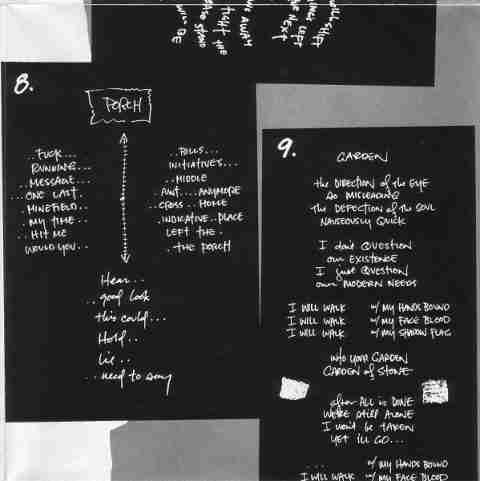 LEFT
NEXT
AWAY
THE
8.
PORCH
..FUCK...
RUNNING...
..MESSAGE..
..ONE LAST.
MINEFIELD..
.MY TIME..
..HIT ME
WOULD YOU..
..PILLS...
INITIATIVES...
..MIDDLE
AINT....ANYMORE
..CROSS...HOME
INDICATIVE..PLACE
LEFT THE .
. THE PORCH
Hear...
..good look
this could...
Hold..
Lie..
..need to say
9.
GARDEN
the DIRECTION of the EYE
SO MISLEADING
THE DEFECTION of the SOUL
NAUSEOUSLY QUICK
I don't QUESTION
our EXISTENCE
I just QUESTION
our MODERN NEEDS
I WILL WALK w/ MY HANDS BOUND
I WILL WALK w/ MY FACE BLOOD
I WILL WALK w/ MY SHADOW FLAG
into your GARDEN
GARDEN of STONE
after ALL is DONE
WE'RE still ALONE
I won't be TAKEN
YET I'll GO...
... w/ MY HANDS BOUND
I WILL WALK w/ MY FACE BLOOD